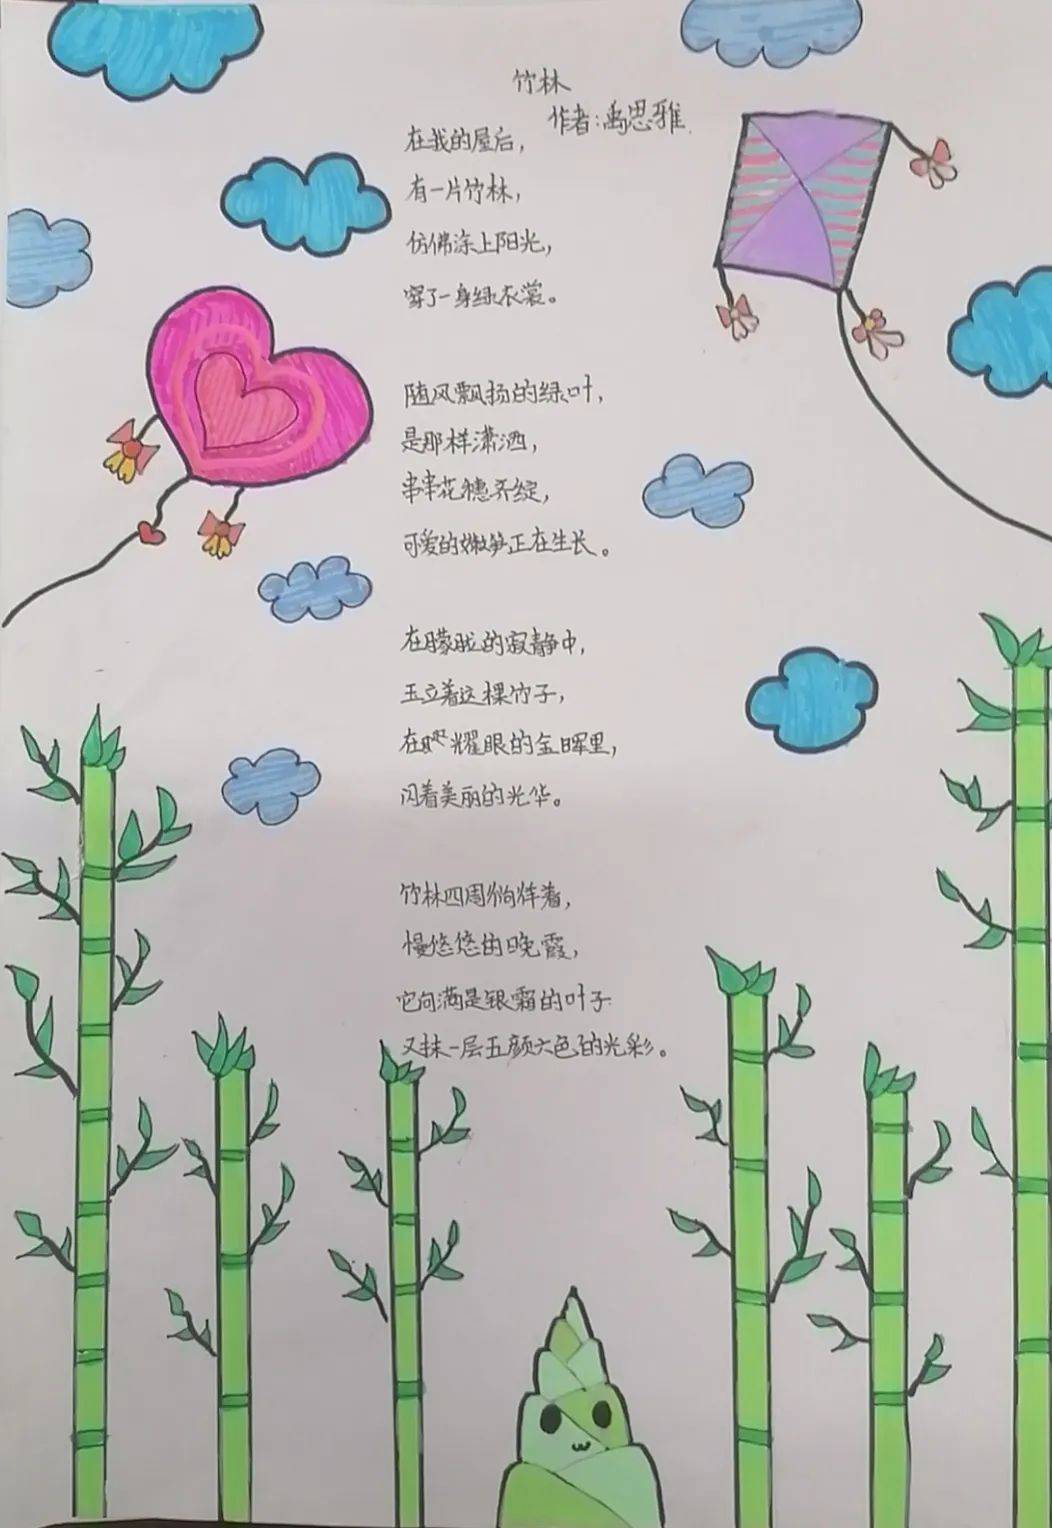 竹林
作者:禹思雅
在我的屋后,
有一片竹林,
仿佛涂上阳光,
穿了一身绿衣裳。
随风飘扬的绿叶,
是那样潇洒,
串串花穗齐绽,
可爱的嫩笋正在生长。
在朦胧的寂静中,
玉立着这棵竹子,
在 耀眼的金晖里,
闪着美丽的光华。
竹林四周徜徉着,
慢悠悠的晚霞,
它向满是银霜的叶子
又抹一层五颜六色的光彩。